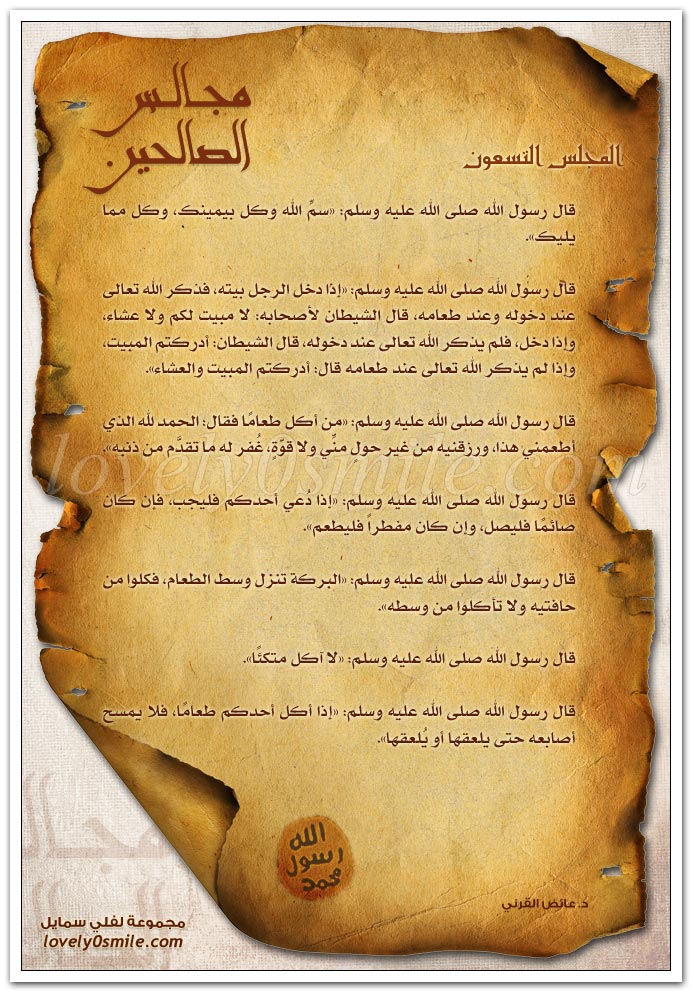 مجالس
الصالحين
المجلس التسعون
قال رسول الله صلى الله عليه وسلم: «سمِّ الله وكل بيمينك، وكل مما
يليك».
قال رسول الله صلى الله عليه وسلم: «إذا دخل الرجل بيته، فذكر الله تعالى
عند دخوله وعند طعامه، قال الشيطان لأصحابه: لا مبيت لكم ولا عشاء،
وإذا دخل، فلم يذكر الله تعالى عند دخوله، قال الشيطان: أدركتم المبيت،
وإذا لم يذكر الله تعالى عند طعامه قال: أدركتم المبيت والعشاء».
قال رسول الله صلى الله عليه وسلم: «من أكل طعامًا فقال: الحمد لله الذي
أطعمني هذا، ورزقنيه من غير حولٍ منِّي ولا قوّةٍ، غُفر له ما تقدَّم من ذنبه».
lovely0smile.com
قال رسول الله صلى الله عليه وسلم: «إذا دُعي أحدكم فليجب، فإن كان
صائمًا فليصل، وإن كان مفطراً فليطعم».
قال رسول الله صلى الله عليه وسلم: «البركة تنزل وسط الطعام، فكلوا من
حافتيه ولا تأكلوا من وسطه».
قال رسول الله صلى الله عليه وسلم: «لا آكل متكئًا».
قال رسول الله صلى الله عليه وسلم: «إذا أكل أحدكم طعامًا، فلا يمسح
أصابعه حتى يلعقها أو يُلعقها».
الله
رسول
محمد
د.عائض القرني
مجموعة لفلي سمايل
lovely0smile.com